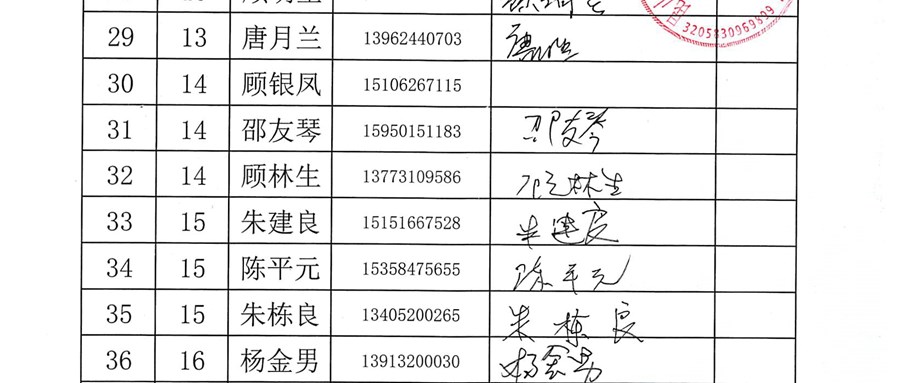 29 13 唐月兰 13962440703
30 14 顾银凤 15106267115
31 14 邵友琴 15950151183 邵友琴
32 14 顾林生 13773109586 顾林生
33 15 朱建良 15151667528 朱建良
34 15 陈平元 15358475655 陈平元
35 15 朱栋良 13405200265 朱栋良
36 16 杨金男 13913200030 杨金男
3205830969899